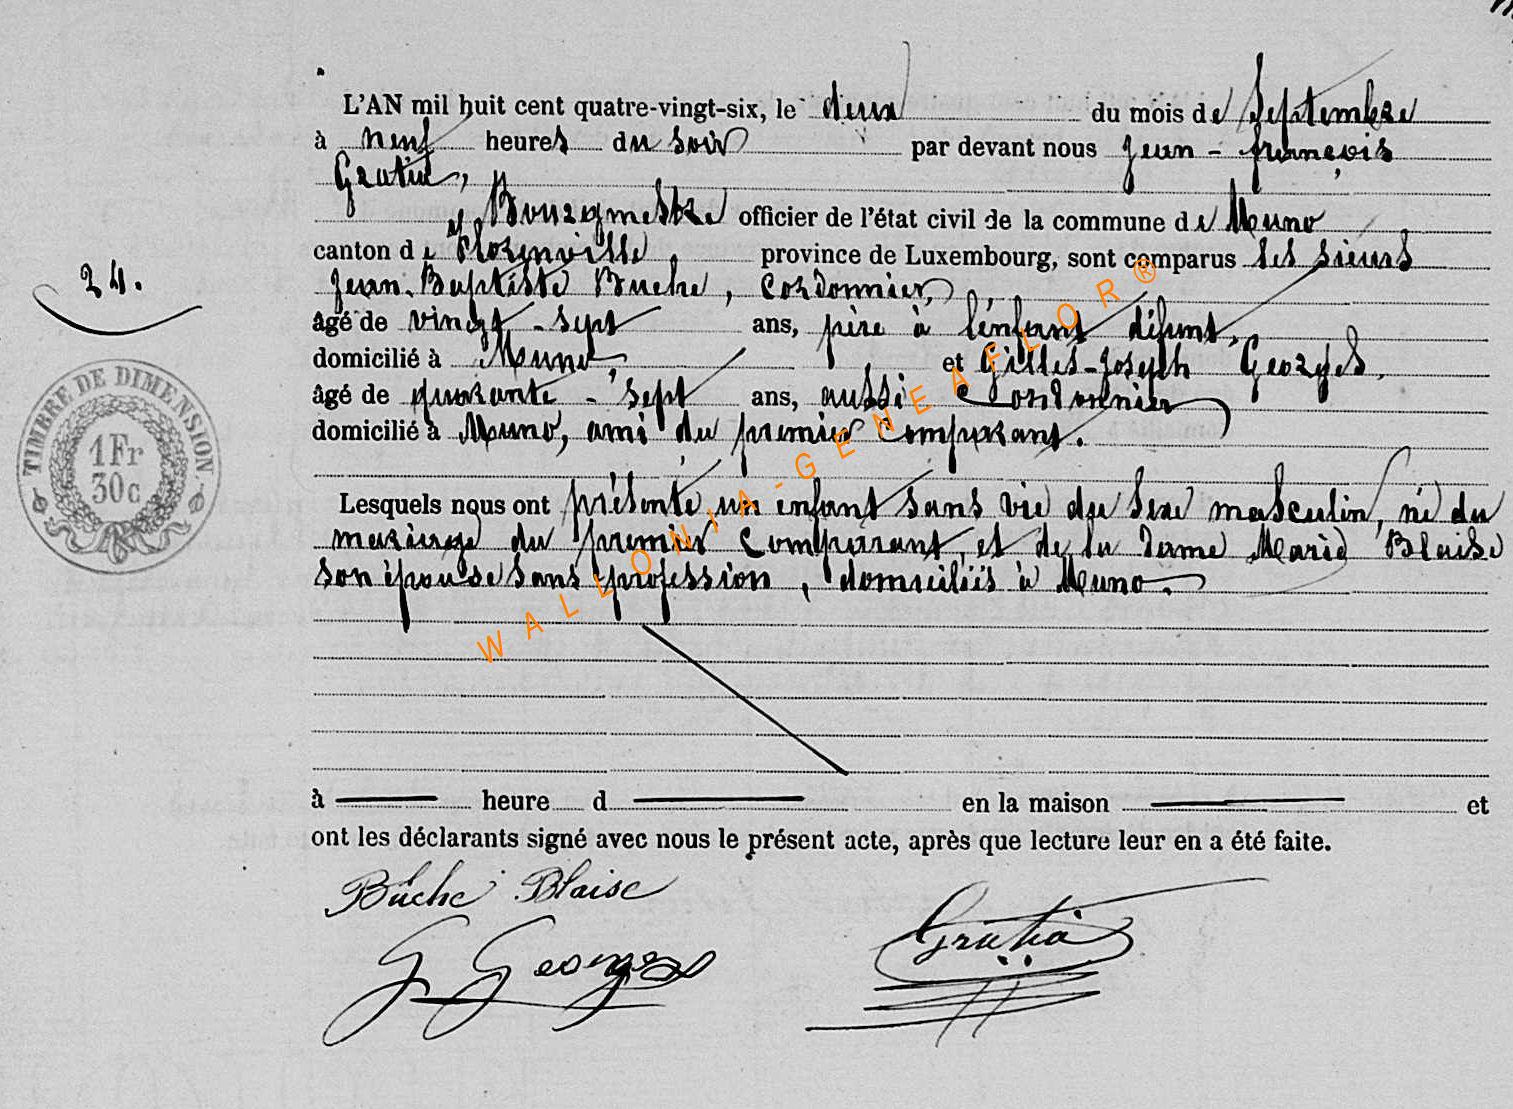 L'AN mil huit cent quatre-vingt-six, le deux du mois de Septembre
à neuf heures du soir par devant nous Jean - françois
Gratia,
Bourgmestre officier de l'état civil de la commune de Muno
canton de Florenville province de Luxembourg, sont comparus les sieurs
24.
Jean-Baptiste Buche, Cordonnier,
âgé de vingt-sept ans, père à l'enfant défunt,
domicilié à Muno, et Gilles-Joseph Georges,
âgé de quarante-sept ans, aussi Cordonnier
domicilié à Muno, ami du premier Comparant.
TIMBRE DE DIMENSION.
1 Fr
30c
Lesquels nous ont présenté un enfant sans vie du Sexe masculin, né du
mariage du premier Comparant, et de la Dame Marie Blaise
son épouse sans profession, domiciliés à Muno.
à heure d en la maison et
ont les déclarants signé avec nous le présent acte, après que lecture leur en a été faite.
Buche Blaise
G Georges
Gratia
WALLONIA-GENEAFLOR®